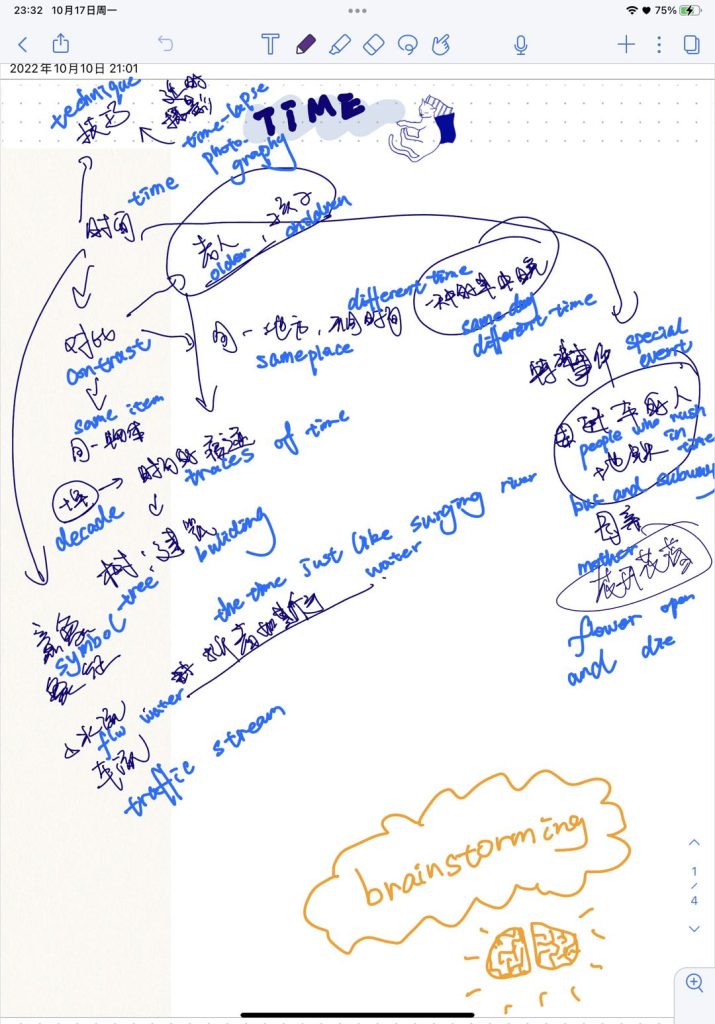 23:32 10月17日周一
75%
2022年10月10日 21:01
technique
技巧
延时
摄影
time-lapse
photo-
graphy
TIME
time
时间
老人，孩子
older children
对比
contrast
different time
同一地方，不同时间
same place
一种的早中晚
same day
different-time
特殊事件
special
event
same item
同一物体
时间的痕迹
trates of time
十年
decade
树；建筑
tree
building
赶车的人
people who rush
地铁 in time
bus and subway
母亲
mother
花开花落
flower open
and die
the time just like surging river
water
逝者如斯
意象
symbol
象征
水流
flw water
车流
traffic stream
brainstorming
1
/
4